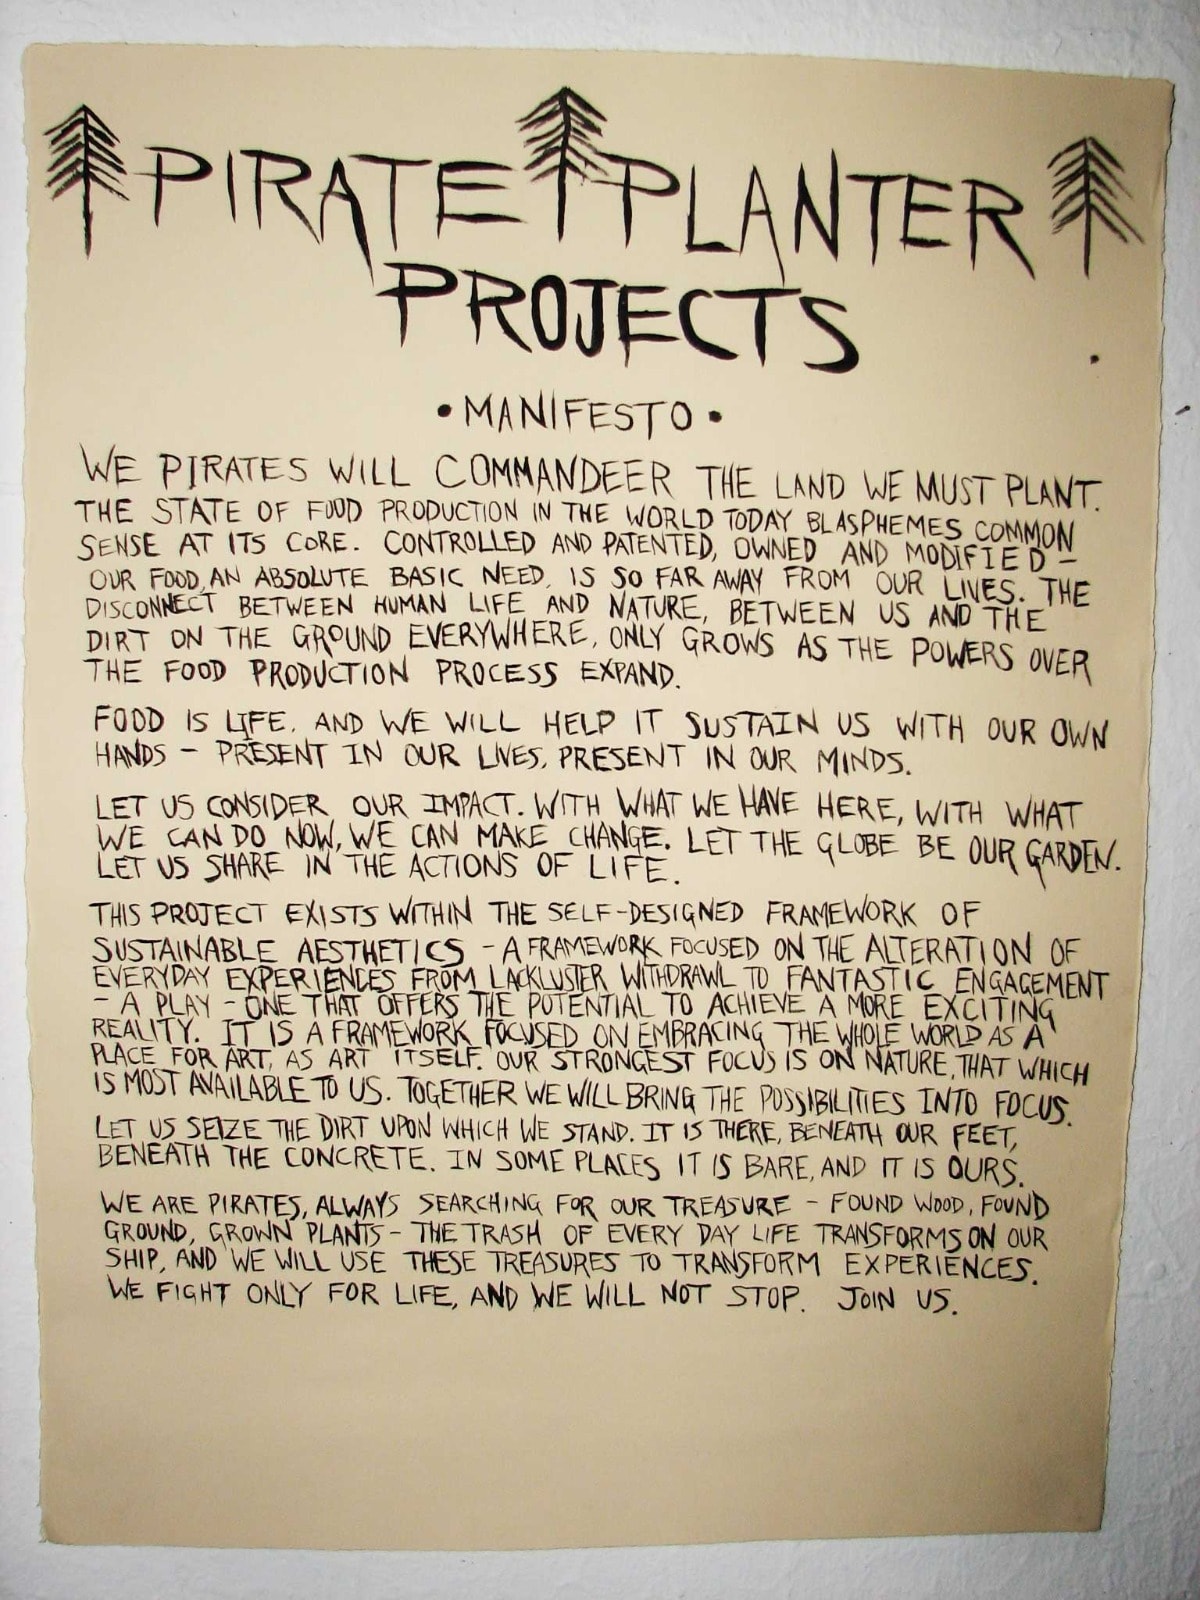 PIRATE PLANTER
PROJECTS
• MANIFESTO •
WE PIRATES WILL COMMANDEER THE LAND WE MUST PLANT.
THE STATE OF FOOD PRODUCTION IN THE WORLD TODAY BLASPHEMES COMMON
SENSE AT ITS CORE. CONTROLLED AND PATENTED, OWNED AND MODIFIED –
OUR FOOD, AN ABSOLUTE BASIC NEED, IS SO FAR AWAY FROM OUR LIVES. THE
DISCONNECT BETWEEN HUMAN LIFE AND NATURE, BETWEEN US AND THE
DIRT ON THE GROUND EVERYWHERE, ONLY GROWS AS THE POWERS OVER
THE FOOD PRODUCTION PROCESS EXPAND.
FOOD IS LIFE, AND WE WILL HELP IT SUSTAIN US WITH OUR OWN
HANDS – PRESENT IN OUR LIVES, PRESENT IN OUR MINDS.
LET US CONSIDER OUR IMPACT. WITH WHAT WE HAVE HERE, WITH WHAT
WE CAN DO NOW, WE CAN MAKE CHANGE. LET THE GLOBE BE OUR GARDEN.
LET US SHARE IN THE ACTIONS OF LIFE.
THIS PROJECT EXISTS WITHIN THE SELF-DESIGNED FRAMEWORK OF
SUSTAINABLE AESTHETICS – A FRAMEWORK FOCUSED ON THE ALTERATION OF
EVERYDAY EXPERIENCES FROM LACKLUSTER WITHDRAWL TO FANTASTIC ENGAGEMENT
– A PLAY – ONE THAT OFFERS THE POTENTIAL TO ACHIEVE A MORE EXCITING
REALITY. IT IS A FRAMEWORK FOCUSED ON EMBRACING THE WHOLE WORLD AS A
PLACE FOR ART, AS ART ITSELF. OUR STRONGEST FOCUS IS ON NATURE, THAT WHICH
IS MOST AVAILABLE TO US. TOGETHER WE WILL BRING THE POSSIBILITIES INTO FOCUS.
LET US SEIZE THE DIRT UPON WHICH WE STAND. IT IS THERE, BENEATH OUR FEET,
BENEATH THE CONCRETE. IN SOME PLACES IT IS BARE, AND IT IS OURS.
WE ARE PIRATES, ALWAYS SEARCHING FOR OUR TREASURE – FOUND WOOD, FOUND
GROUND, GROWN PLANTS – THE TRASH OF EVERY DAY LIFE TRANSFORMS ON OUR
SHIP, AND WE WILL USE THESE TREASURES TO TRANSFORM EXPERIENCES.
WE FIGHT ONLY FOR LIFE, AND WE WILL NOT STOP. JOIN US.